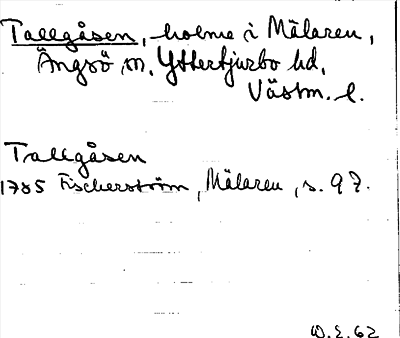 Tallgåsen, holme i Mälaren,
Ängsö sn, Yttertjurbo hd,
Västm. l.
Tallgåsen
1785 Fischerström, Mälaren, s. 97.
W.E. 62